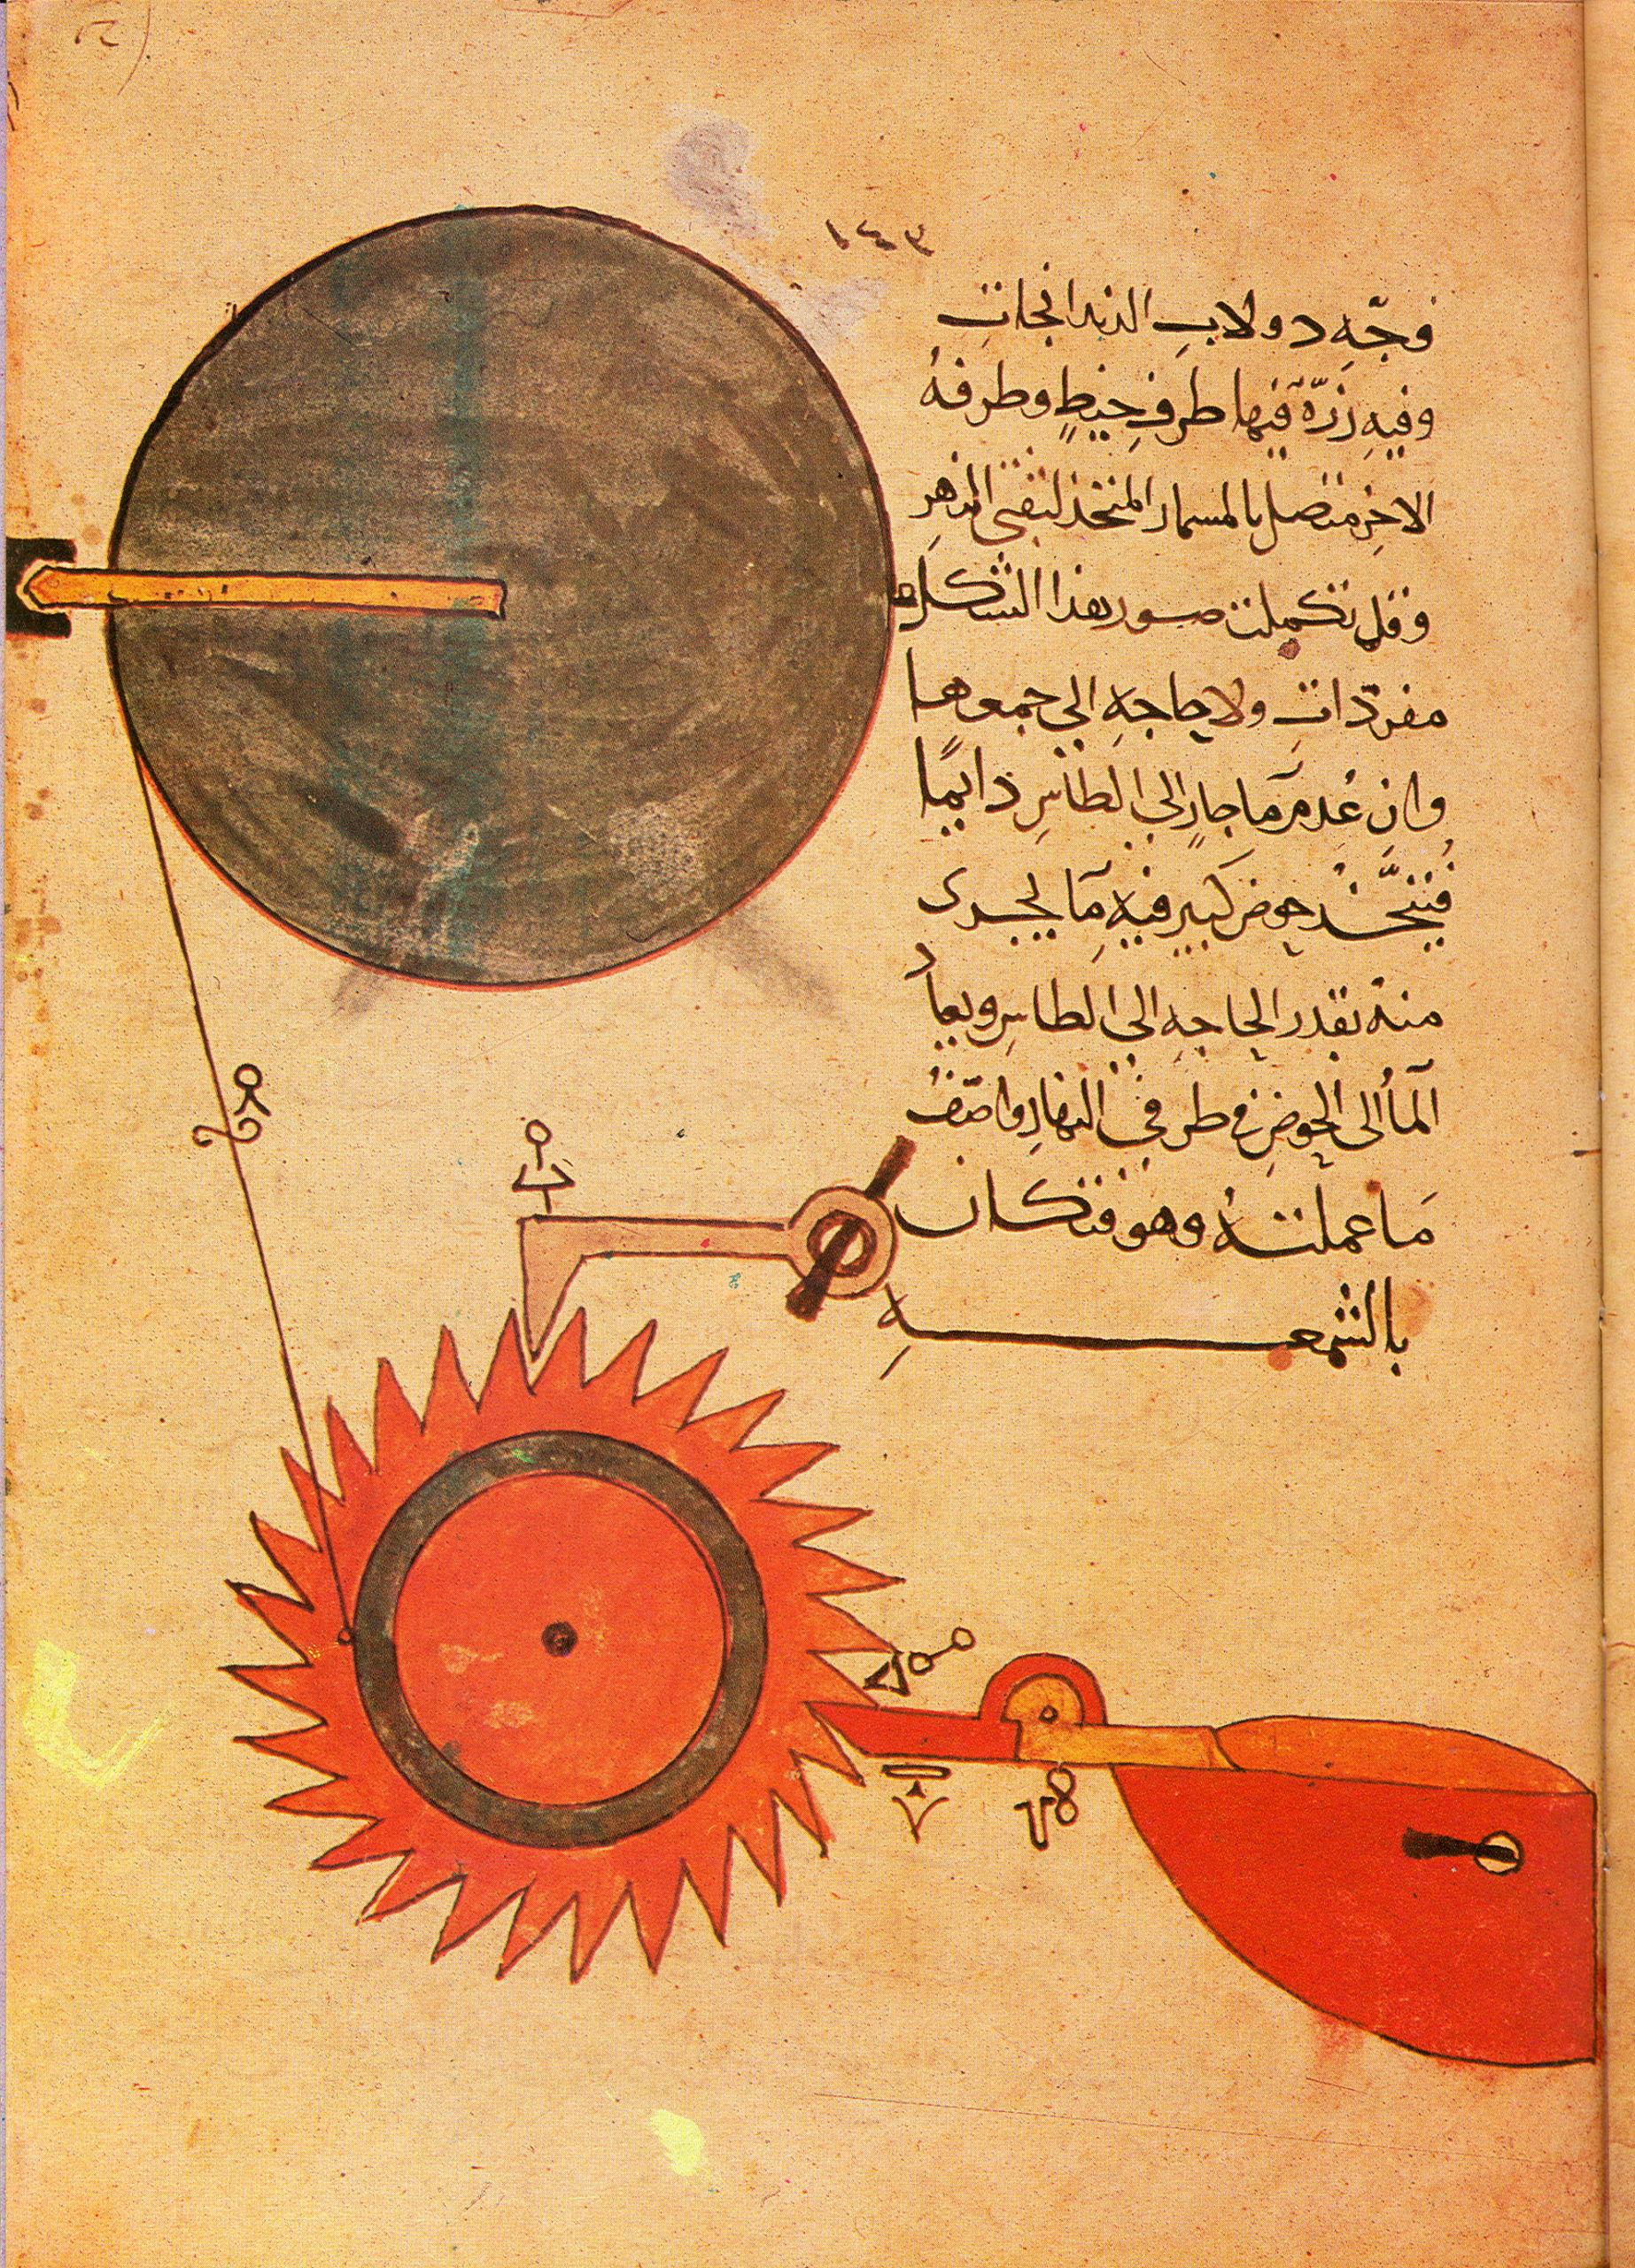 ١٤٣
وجّهِ دولابِ الدندانجاتِ
وفيهِ زرّة فيها طرفِ خيطٍ وطرفهُ
الاخر متصل بالمسمار المتخذ لثقبى
وقد تكملت صور هذا الشكل
مفردّاتِ ولا حاجهِ الي جمعها
وان عُدم مآ جارٍ الي الطاسِ دايمًا
فيتخّذ حوض كبير فيهِ مآ يجرى
منهُ بقدر الحاجهِ الي الطاسِ ويعاد
المآ الى الحوضِ في طرفي النهار واصّفُ
مَا عملتهُ وهو فنكان
بالشمعهِ